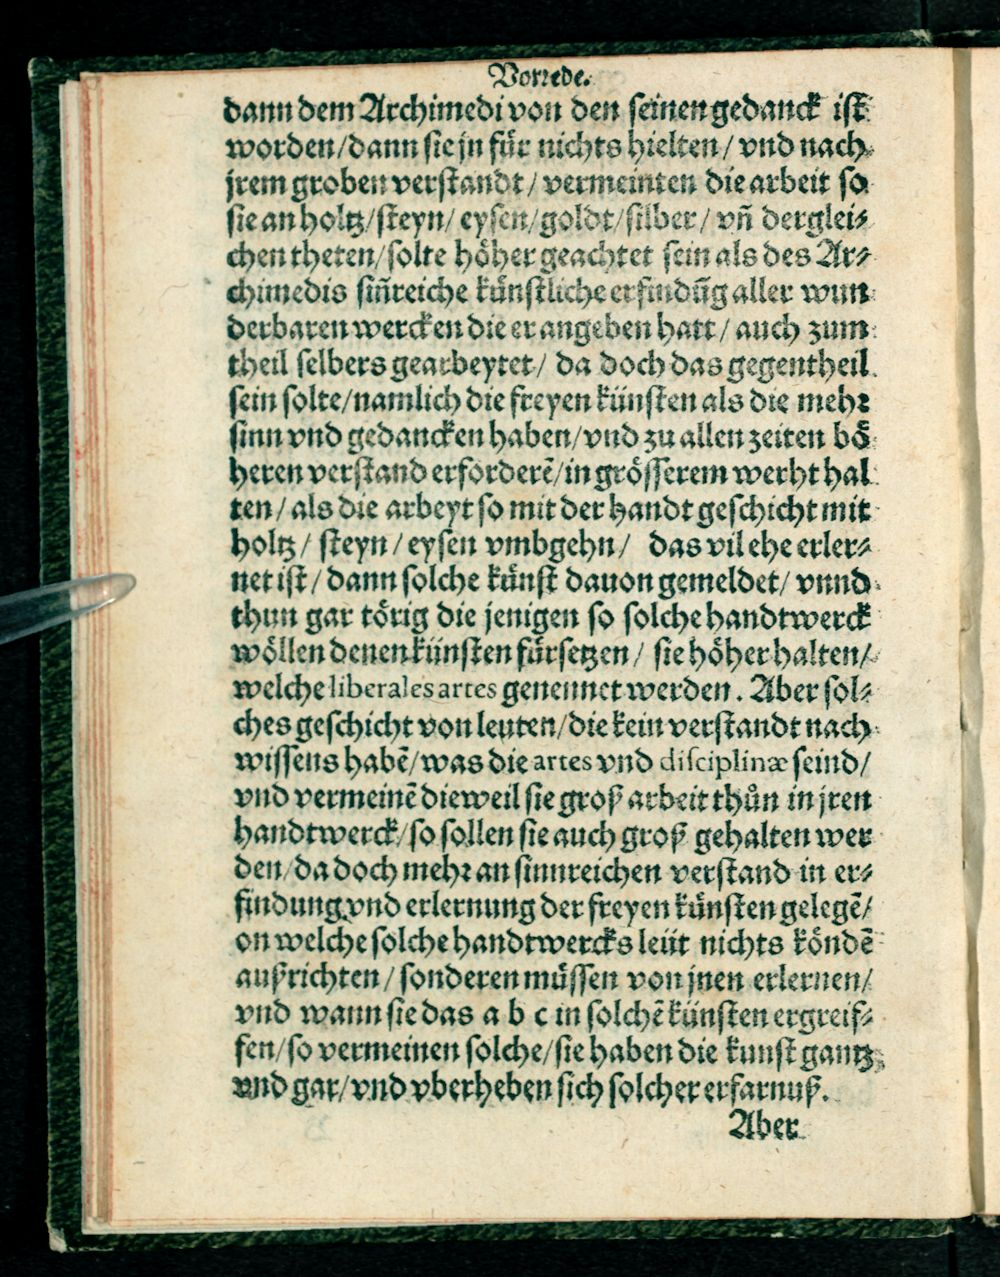 Vorrede.
dann dem Archimedi von den seinen gedanck ist
worden/dann sie jn für nichts hielten/ vnd nach
jrem groben verstandt/ vermeinten die arbeit so
sie an holtz/steyn/ eysen/goldt/silber/ vñ derglei⸗
chen theten/solte höher geachtet sein als des Ar⸗
chimedis siñreiche künstliche erfindũg aller wun
derbaren wercken die er angeben hatt/ auch zum
theil selbers gearbeytet/ da doch das gegentheil
sein solte/namlich die freyen künsten als die mehr
sinn vnd gedancken haben/vnd zu allen zeiten hö
heren verstand erforderẽ/in grösserem werht hal
ten/ als die arbeyt so mit der handt geschicht mit
holtz/ steyn/ eysen vmbgehn/ das vil ehe erler⸗
net ist/ dann solche künst dauon gemeldet/ vnnd
thun gar törig die jenigen so solche handtwerck
wöllen denen künsten fürsetzen/ sie höher halten/
welche liberales artes genennet werden. Aber sol⸗
ches geschicht von leuten/die kein verstandt nach
wissens habẽ/was die artes vnd disciplinæ seind/
vnd vermeinẽ dieweil sie groß arbeit thůn in jren
handtwerck/so sollen sie auch groß gehalten wer
den/da doch mehr an sinnreichen verstand in er⸗
findung vnd erlernung der freyen künsten gelegẽ/
on welche solche handtwercks leüt nichts köndẽ
außrichten/ sonderen müssen von jnen erlernen/
vnd wann sie das a b c in solchẽ künsten ergreif⸗
fen/so vermeinen solche/sie haben die kunst gantz
vnd gar/vnd vberheben sich solcher erfarnuß.
Aber